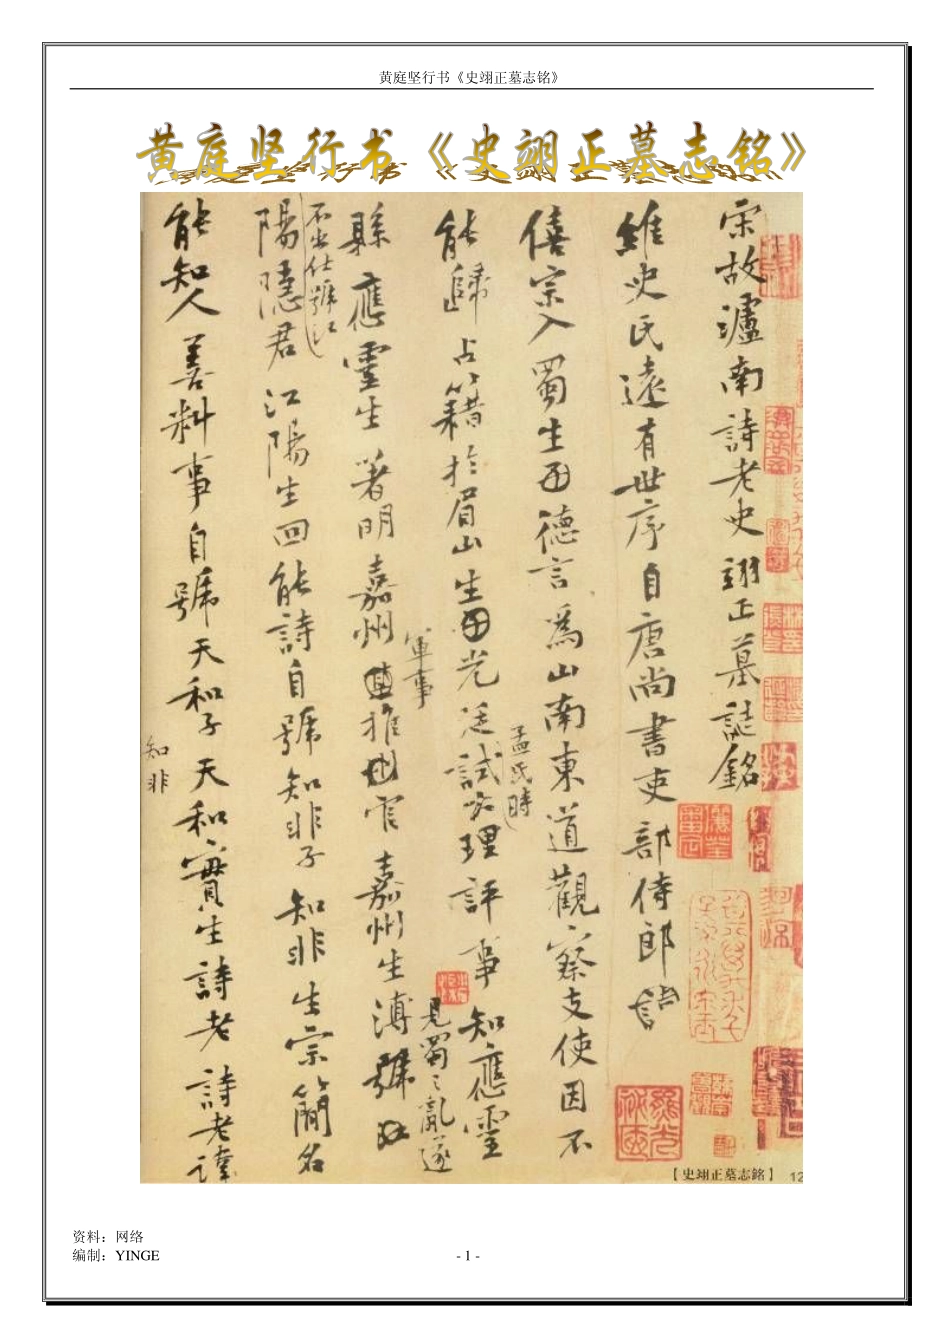 黄庭坚行书《史翊正墓志铭》
黄庭坚行书《史翊正墓志铭》
宋故瀘南詩老史翊正墓誌銘
維史氏遠有世序自唐尚書吏部侍郎
僖宗入蜀生德言為山南東道觀察支使因不
孟氏時
能歸占籍於眉山生光廷試大理評事知應靈
見蜀之亂遂
軍事
縣應靈生著明嘉州推官嘉州生溥號江
不出仕號江
陽隱君江陽生回能詩自號知非子知非生宗簡名
能知人善料事自號天和子天和實生詩老詩老諱
知非
【史翊正墓志銘】 12
资料：网络
编制：YINGE
- 1 -